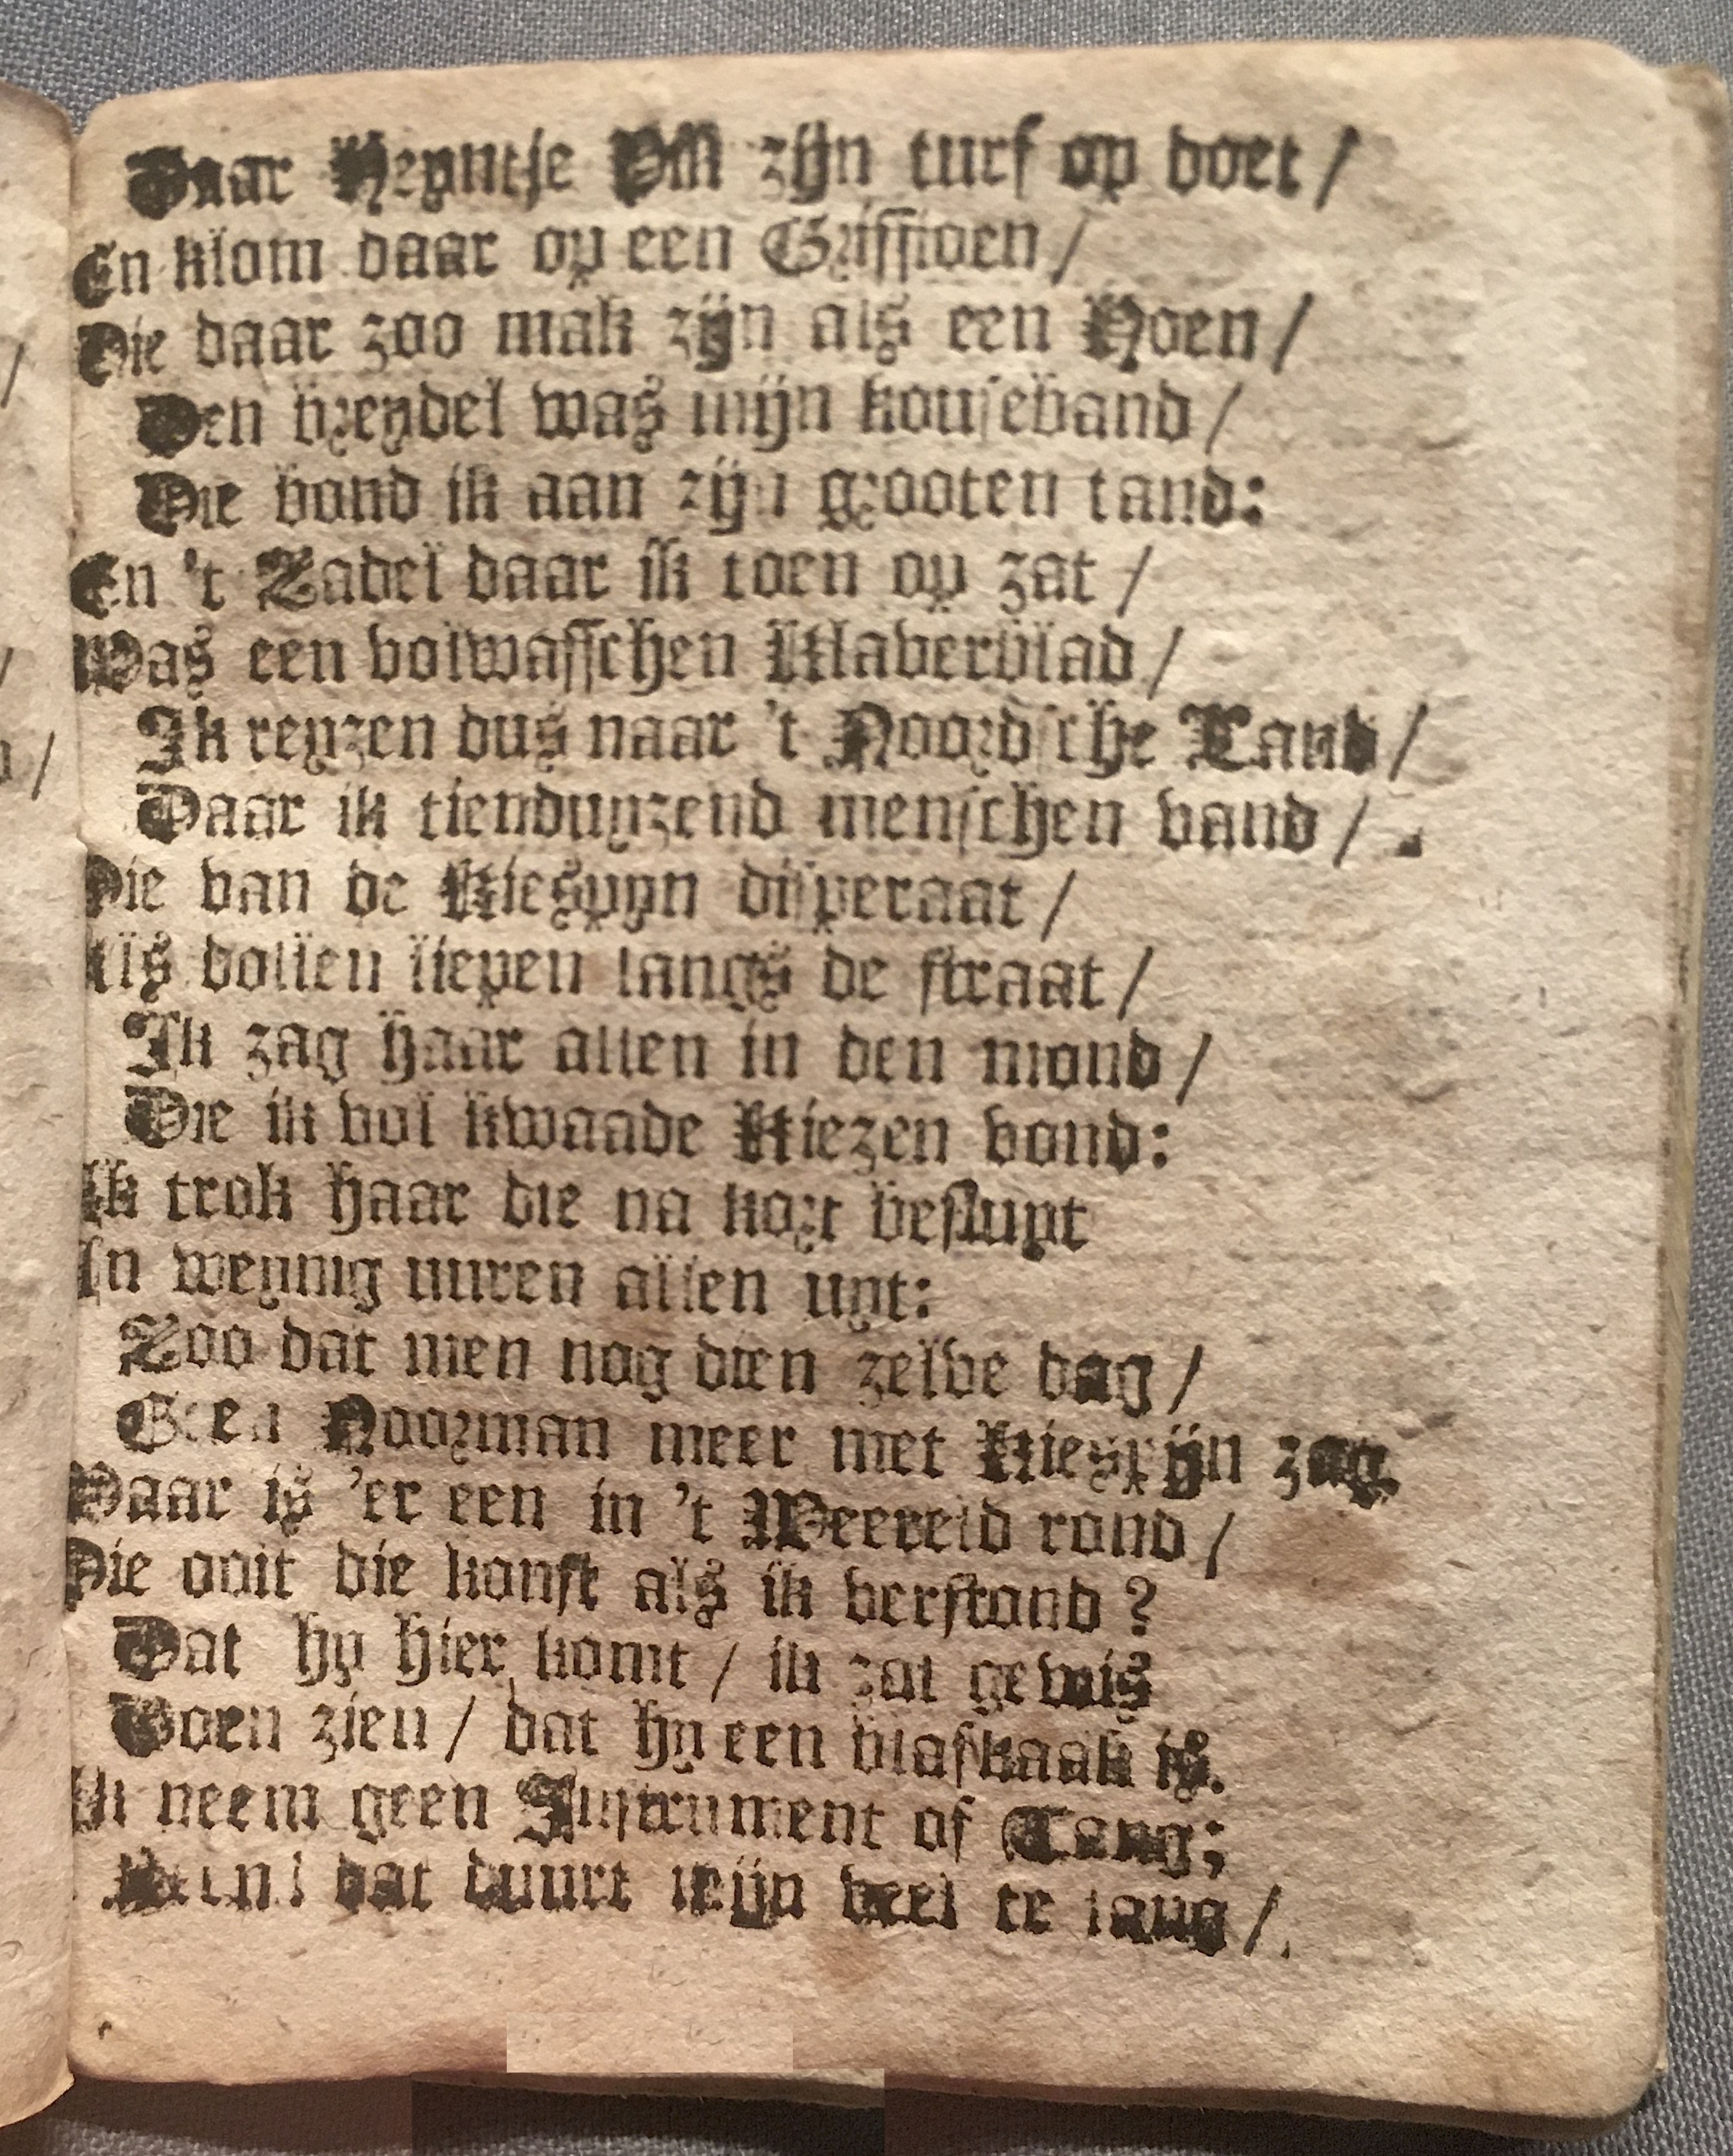 Daar Heyntje Pik zijn turf op doet /
En klom daar op een Griffioen /
Die daar zoo mak zijn als een Hoen /
Den breydel was mijn kouseband /
Die bond ik aan zijn grooten tand:
En 't Zadel daar ik toen op zat /
Was een volwasschen Klaverblad /
Ik reyzen dus naar 't Noordsche Land /
Daar ik tienduyzend menschen vand /
Die van de Kiespyn disperaat /
Als dollen liepen langs de straat /
Ik zag haar allen in den mond /
Die ik vol kwaade Kiezen vond:
Ik trok haar die na kort besluyt
In weynig uuren allen uyt:
Zoo dat men nog dien zelve dag /
Geen Noorman meer met Kiespijn zag.
Waar is 'er een in 't Weereld rond /
Die ooit die konst als ik verstond ?
Dat hy hier komt / ik zal gewis
Doen zien / dat hy een blaskaak is.
Ik neem geen Instrument of Tang;
dat duurt mijn veel te lang /